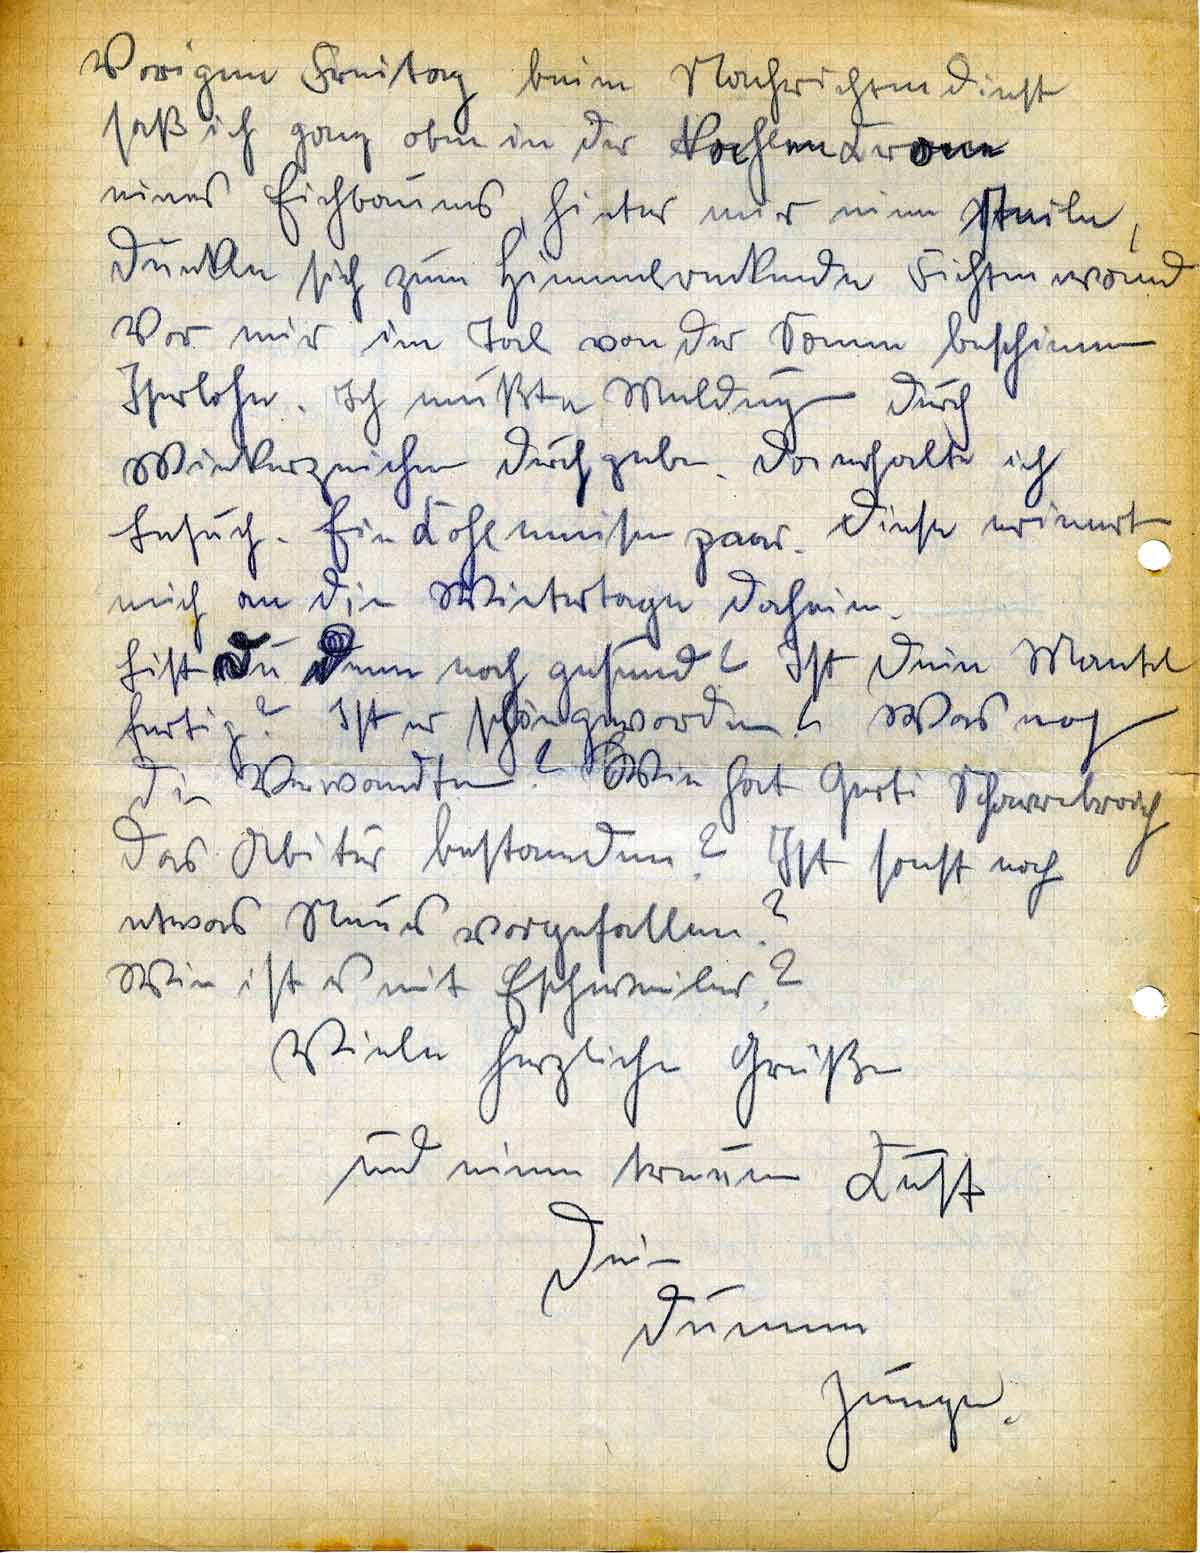 Vorigen Freitag beim Nachrichtendienst
saß ich ganz oben in der kahlen Krone
eines Eichbaums, hinter mir eine steile,
dunkle sich zum Himmelreckende Fichtenwand
Vor mir im Tal von der Sonne beschienen
Iserlohn. Ich mußte Meldung durch
Winkerzeichen durchgeben. Da erhalte ich
Besuch. Ein Kohlmeisenpaar. Diese erinnert
mich an die Wintertage daheim.
Bist Du denn noch gesund? Ist dein Mantel
fertig? Ist er schön geworden? Was machen
die Verwandten? Wie hat Gerti
das Abitur bestanden? Ist sonst noch
etwas Neues vorgefallen?
Wie ist es mit Eschweiler?
Viele herzliche Grüße
und einen treuen Kuß
Dein
dummer
Junge.